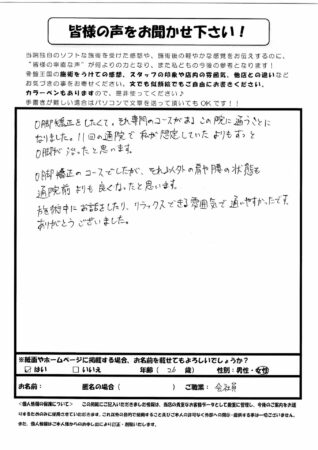 皆様の声をお聞かせ下さい！
当院独自のソフトな施術を受けた感想や、施術後の軽やかな感覚をお伝えするのに、
"皆様の率直な声"が何よりの力となり、また私どもの今後の参考となります！
骨盤王国の施術をうけての感想、スタッフの印象や店内の雰囲気、他店との違いなど
お気づきの事をお寄せください。文でも似顔絵でもご自由にお書きください、
カラーペンもありますので、是非使ってください♪
手書きが難しい場合はパソコンで文章を送って頂いてもOKです！！
O脚矯正をしたくて、それ専門のコースがあるこの院に通うことに
なりました。11回の通院で私が想定していたよりもずっと
O脚が治ったと思います。
O脚矯正のコースでしたが、それ以外の肩や腰の状態も
通院前よりも良くなったと思います。
施術中にお話をしたり、リラックスできる雰囲気で通いやすかったです。
ありがとうございました。
※紙面やホームページに掲載する場合、お名前を載せてもよろしいでしょうか？
はい いいえ 年齢（ 26 歳） 性別：男性・女性
お名前： 匿名の場合（ ） ご職業： 会社員
＜個人情報の保護について＞ この用紙にご記入いただきました情報は、当店の貴重なお客様データとして厳重に管理し、今後のご案内をお送り
するためのみに使用させていただきます。これ以外の目的で使用すること及びご本人の許可なく外部への開示・提供する事は一切ございません。
また、個人情報はご本人様からのお申し出により訂正・お願いいたします。